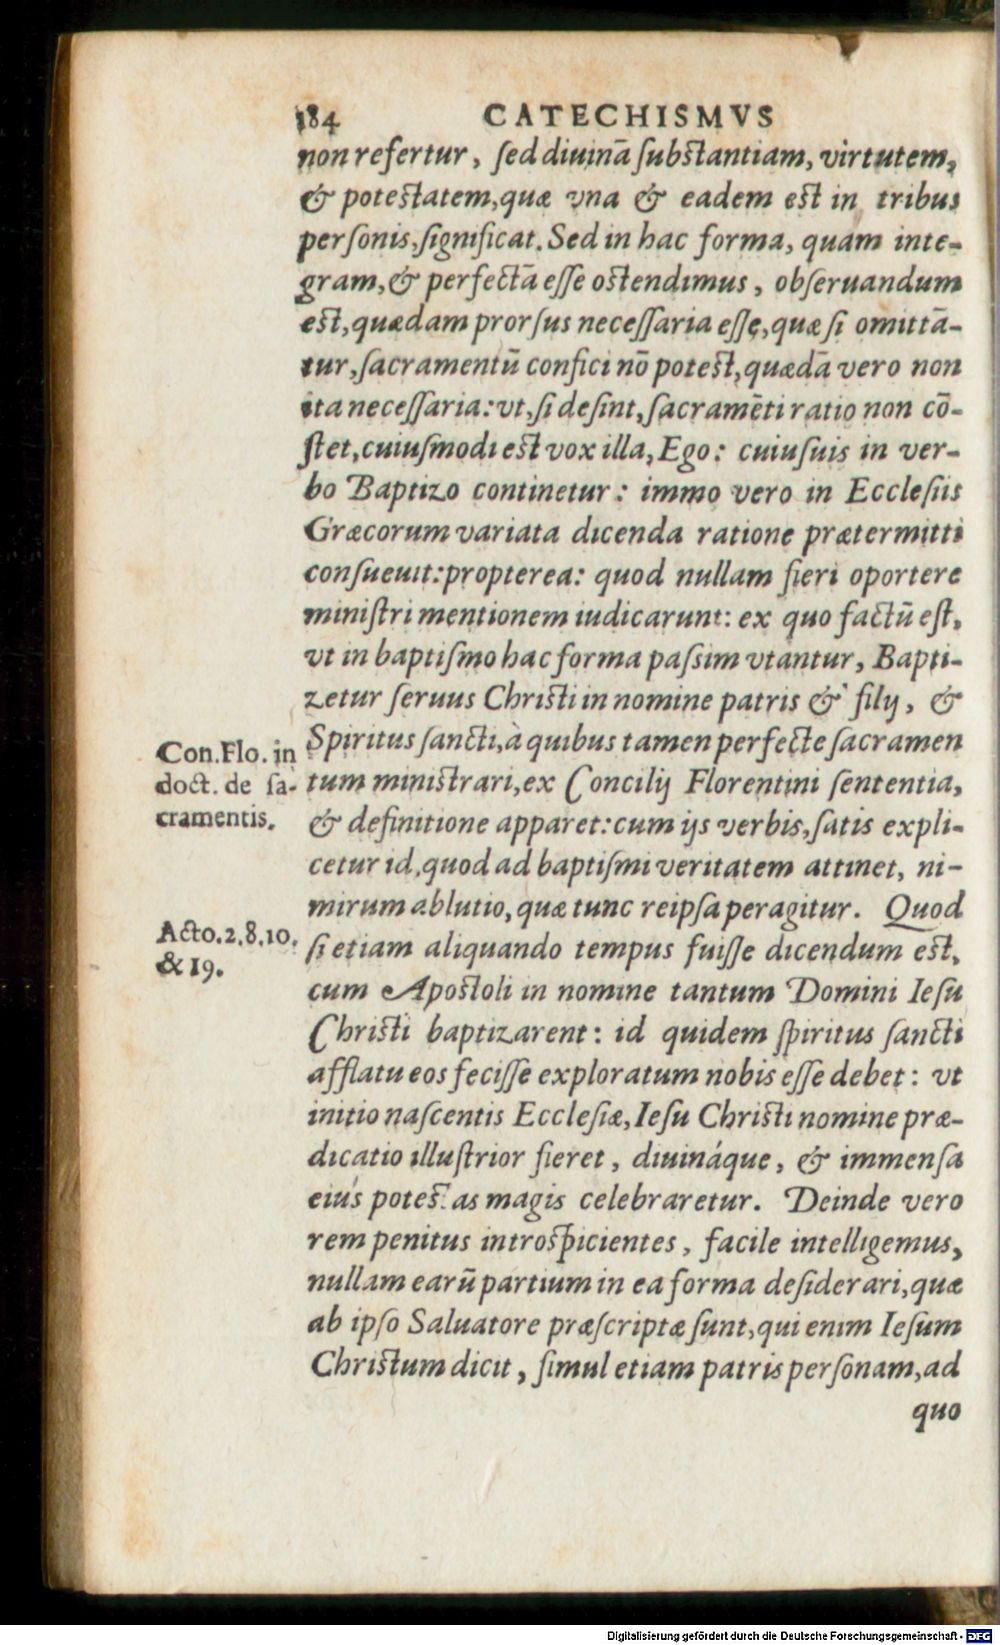 184 CATECHISMVS
non refertur, ſed diuinā ſubſtantiam, virtutem,
& poteſtatem, quæ vna & eadem eſt in tribus
perſonis, ſignificat. Sed in hac forma, quam inte-
gram, & perfectā eſſe oſtendimus, obſeruandum
eſt, quædam prorſus neceſſaria eſſe, quæ ſi omittā-
tur, ſacramentū confici nō poteſt, quædā vero non
ita neceſſaria: vt, ſi deſint, ſacramēti ratio non cō-
ſtet, cuiuſmodi eſt vox illa, Ego: cuiuſuis in ver-
bo Baptizo continetur: immo vero in Eccleſiis
Græcorum variata dicenda ratione prætermitti
conſueuit: propterea: quod nullam fieri oportere
miniſtri mentionem iudicarunt: ex quo factū eſt,
vt in baptiſmo hac forma paſsim vtantur, Bapti-
zetur ſeruus Chriſti in nomine patris & filij, &
Spiritus ſancti, à quibus tamen perfecte ſacramen
Con. Flo. in
doct. de ſa-
cramentis.
tum miniſtrari, ex Concilij Florentini ſententia,
& definitione apparet: cum ijs verbis, ſatis expli-
cetur id, quod ad baptiſmi veritatem attinet, ni-
mirum ablutio, quæ tunc reipſa peragitur. Quod
Acto. 2. 8. 10.
& 19.
ſi etiam aliquando tempus fuiſſe dicendum eſt,
cum Apoſtoli in nomine tantum Domini Ieſu
Chriſti baptizarent: id quidem ſpiritus ſancti
afflatu eos feciſſe exploratum nobis eſſe debet: vt
initio naſcentis Eccleſiæ, Ieſu Chriſti nomine præ-
dicatio illuſtrior fieret, diuináque, & immenſa
eius poteſtas magis celebraretur. Deinde vero
rem penitus introſpicientes, facile intelligemus,
nullam earū partium in ea forma deſiderari, quæ
ab ipſo Saluatore præſcriptæ ſunt, qui enim Ieſum
Chriſtum dicit, ſimul etiam patris perſonam, ad
quo
Digitalisierung gefördert durch die Deutsche Forschungsgemeinschaft - DFG